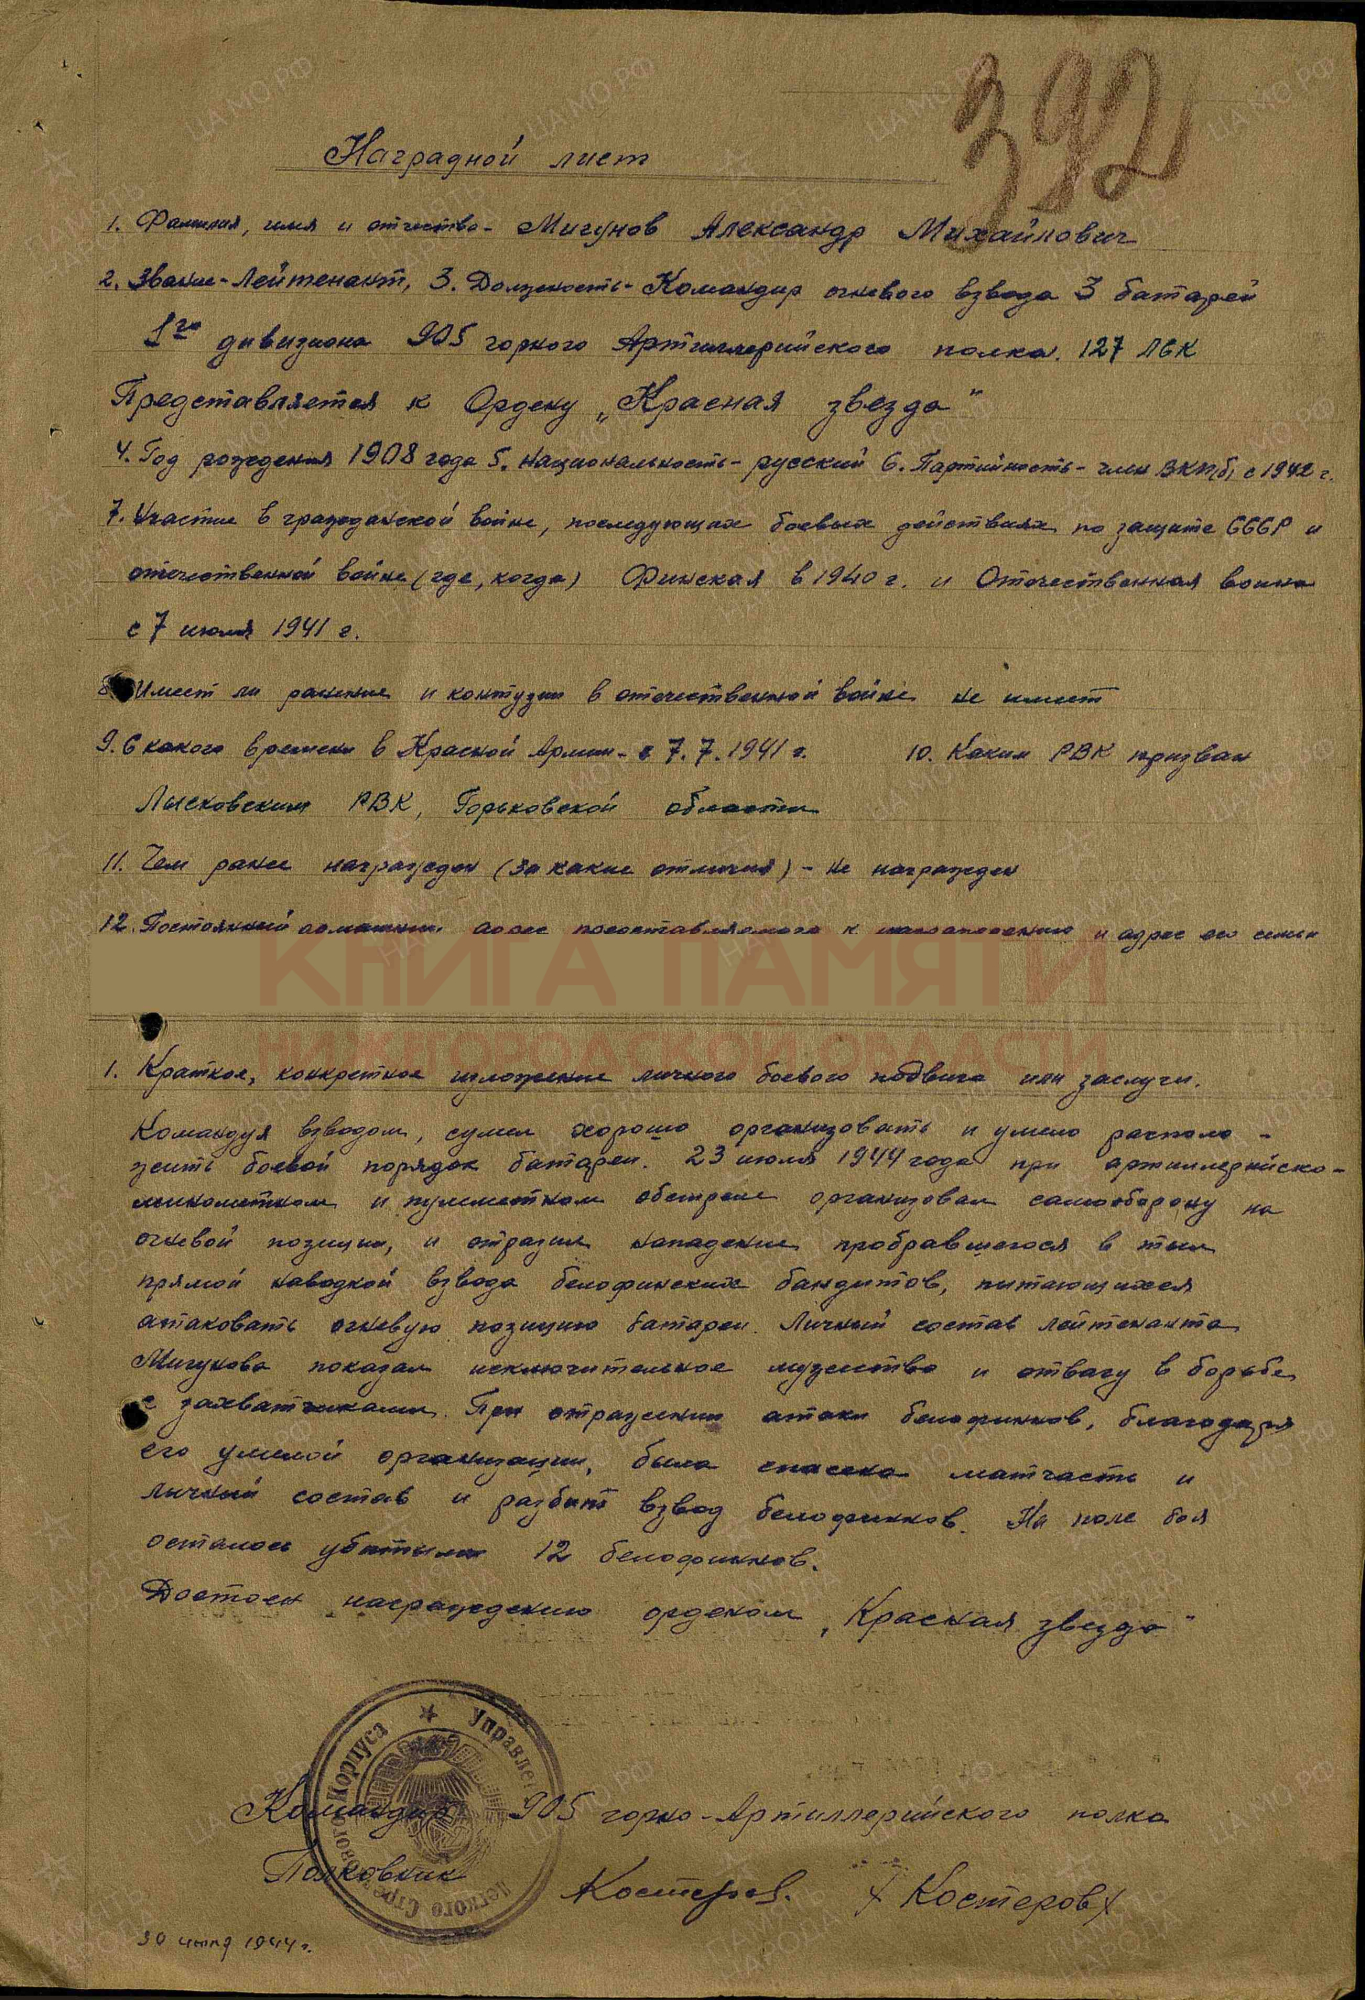 392
Наградной лист
1. Фамилия, имя и отчество - Мигунов Александр Михайлович
2. Звание - Лейтенант, 3. Должность - Командир огневого взвода 3 батареи
1го дивизиона 905 горного Артиллерийского полка. 127 ЛСК
Представляется к Ордену „Красная звезда"
4. Год рождения 1908 года 5. Национальность - русский 6. Партийность - член ВКП(б) с 1942 г.
7. Участие в гражданской войне, последующих боевых действиях по защите СССР и
отечественной войне (где, когда) Финская в 1940 г. и Отечественная война
с 7 июля 1941 г.
8. Имеет ли ранения и контузии в отечественной войне не имеет
9. С какого времени в Красной Армии - с 7.7.1941 г. 10. Каким РВК призван
Лысковским РВК, Горьковской области
11. Чем ранее награжден (за какие отличия) - не награжден
12. Постоянный домашний адрес представляемого к награждению и адрес его семьи
КНИГА ПАМЯТИ
НИЖЕГОРОДСКОЙ ОБЛАСТИ
1. Краткое, конкретное изложение личного боевого подвига или заслуги.
Командуя взводом, сумел хорошо организовать и умело располо-
жить боевой порядок батареи. 23 июля 1944 года при артиллерийско-
минометном и пулеметном обстреле организовал самооборону на
огневой позиции, и отразил нападение пробравшегося в тыл
прямой наводкой взвода белофинских бандитов, питающихся
атаковать огневую позицию батареи. Личный состав лейтенанта
Мигунова показал исключительное мужество и отвагу в борьбе
с захватчиками. При отражении атаки белофиннов, благодаря
его умелой организации, была спасена матчасть и
личный состав и разбит взвод белофиннов. На поле боя
осталось убитыми 12 белофиннов.
Достоен награждению орденом „Красная звезда"
Управление Легкого Стрелкового Корпуса
Командир 905 горно-Артиллерийского полка
Полковник Костеров. / Костеров /
30 июля 1944 г.